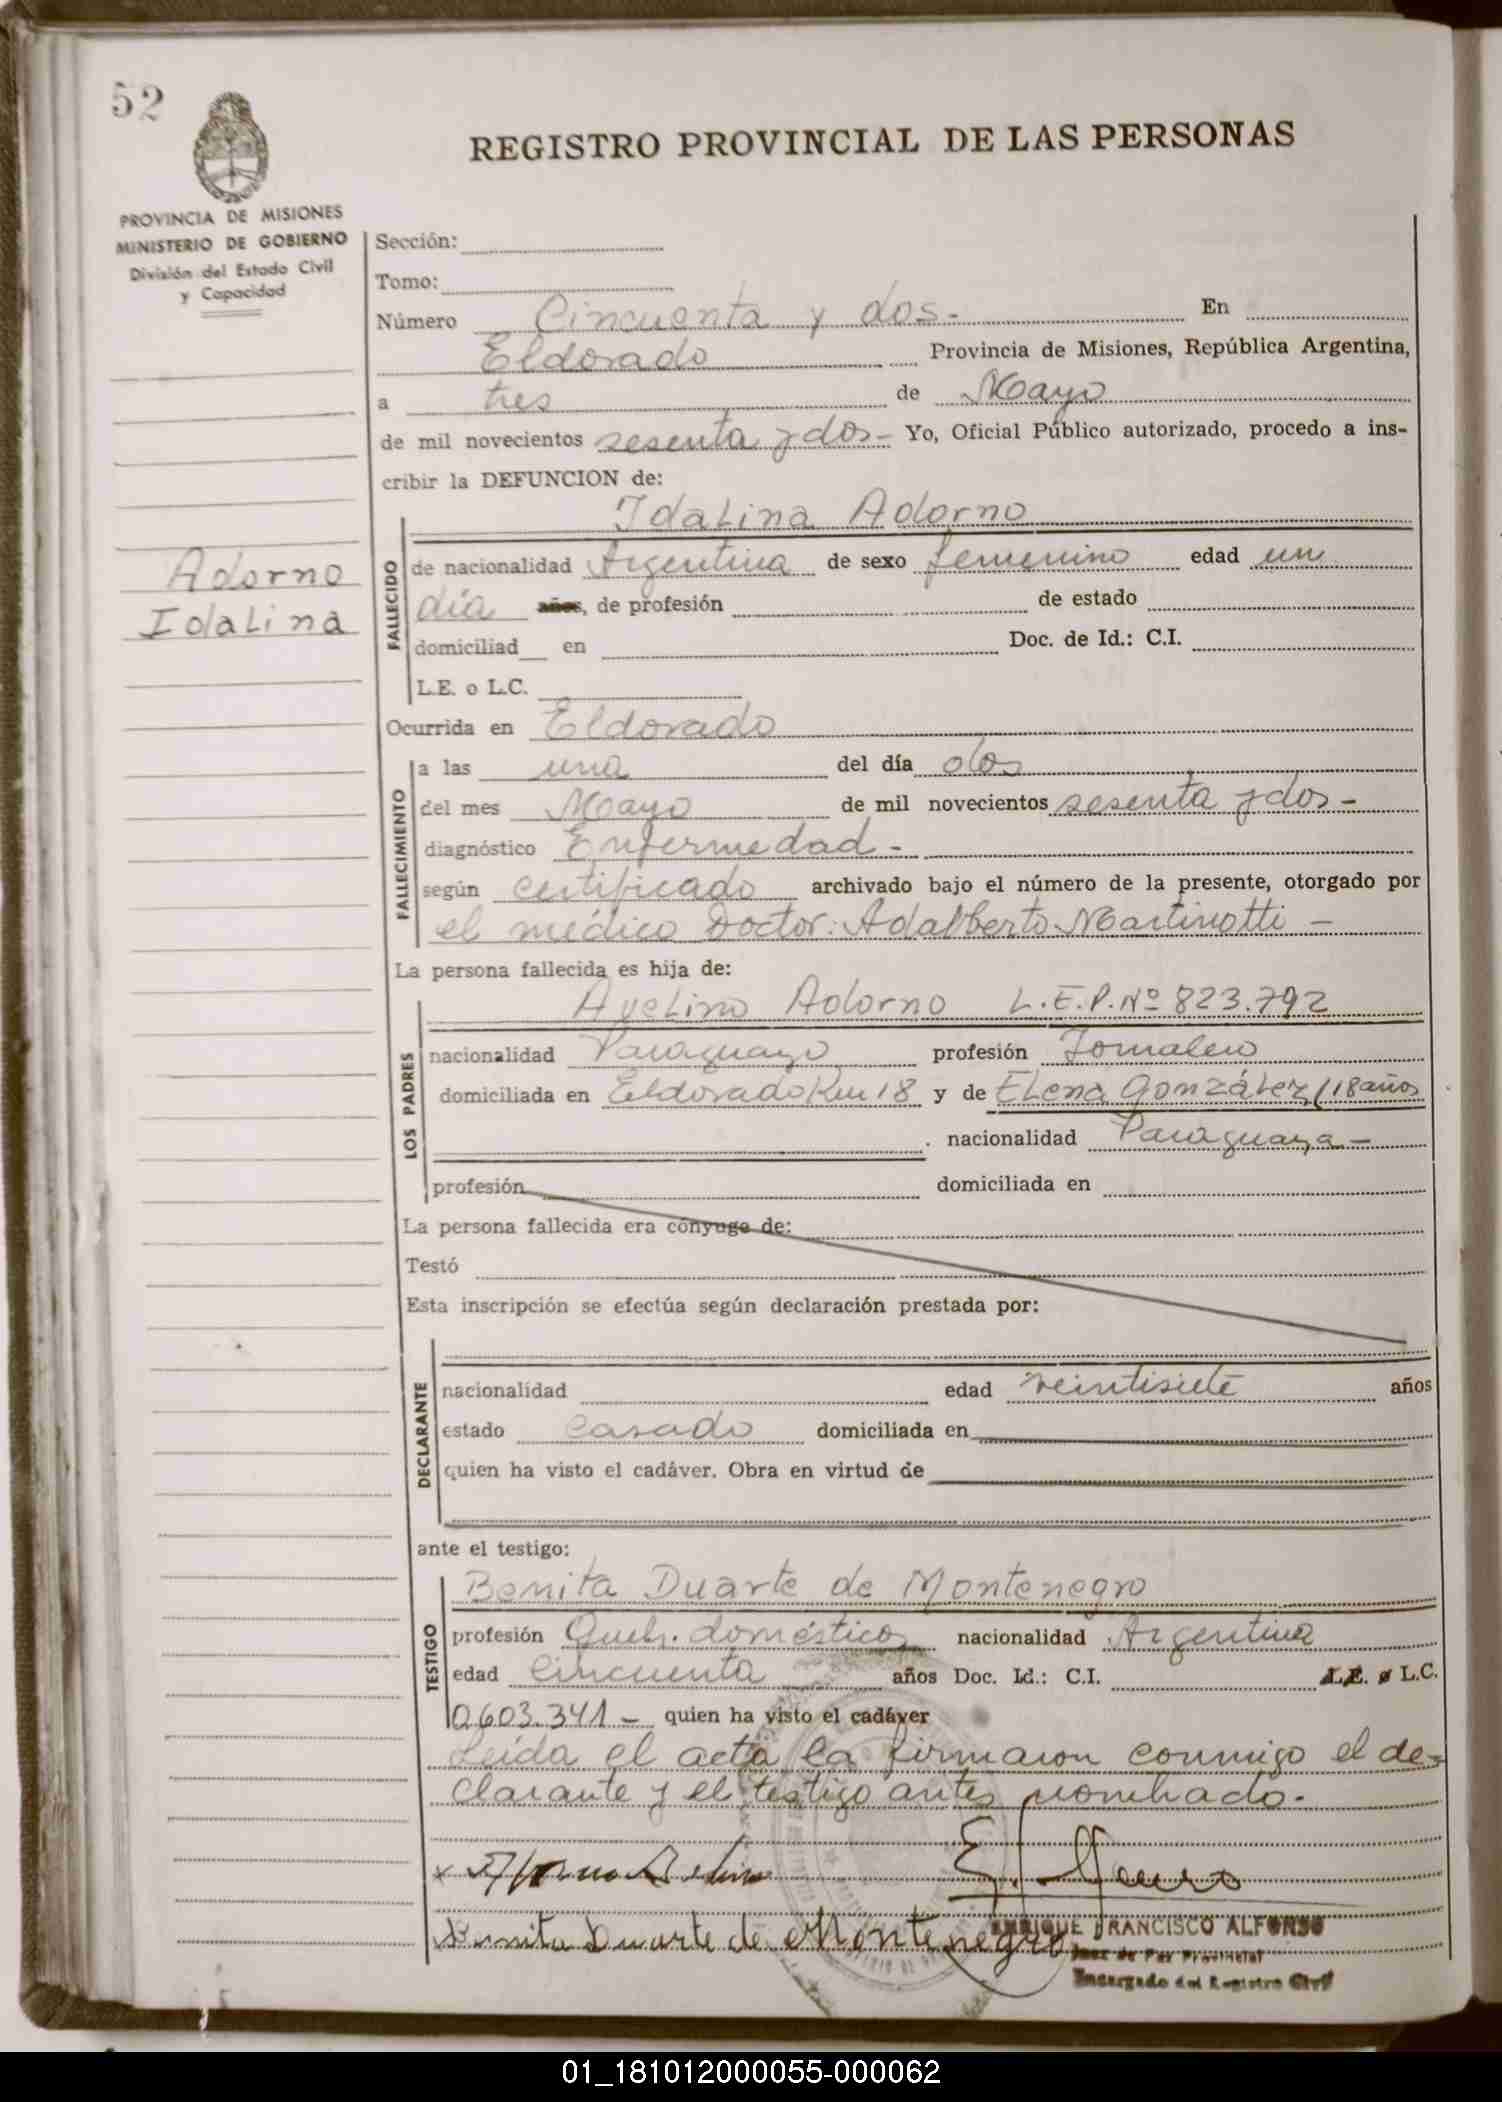 52
REGISTRO PROVINCIAL DE LAS PERSONAS
PROVINCIA DE MISIONES
MINISTERIO DE GOBIERNO
División del Estado Civil
y Capacidad
Sección:
Tomo:
Número Cincuenta y dos.- En
Eldorado Provincia de Misiones, República Argentina,
a tres de Mayo
de mil novecientos sesenta y dos- Yo, Oficial Público autorizado, procedo a ins-
cribir la DEFUNCION de:
Idalina Adorno
Adorno
Idalina
FALLECIDO
de nacionalidad Argentina de sexo femenino edad un
día años, de profesión de estado
domiciliad en Doc. de Id.: C.I.
L.E. o L.C.
Ocurrida en Eldorado
FALLECIMIENTO
a las una del día dos
del mes Mayo de mil novecientos sesenta y dos-
diagnóstico Enfermedad-
según certificado archivado bajo el número de la presente, otorgado por
el médico Doctor: Adalberto Martinotti -
La persona fallecida es hija de:
LOS PADRES
Avelino Adorno L.E.P.Nº 823.792
nacionalidad Paraguayo profesión Jornalero
domiciliada en Eldorado Km 18 y de Elena González (18 años
nacionalidad Paraguaya-
profesión domiciliada en
La persona fallecida era cónyuge de:
Testó
Esta inscripción se efectúa según declaración prestada por:
DECLARANTE
nacionalidad edad veintisiete años
estado casado domiciliada en
quien ha visto el cadáver. Obra en virtud de
ante el testigo:
TESTIGO
Benita Duarte de Montenegro
profesión Queh. domésticos nacionalidad Argentina
edad cincuenta años Doc. Id.: C.I. L.E. o L.C.
0.603.341- quien ha visto el cadáver
Leída el acta la firmaron conmigo el de-
clarante y el testigo antes nombrado.
Benita Duarte de Montenegro
ENRIQUE FRANCISCO ALFONSO
Juez de Paz Provincial
Encargado del Registro Civil
01_181012000055-000062